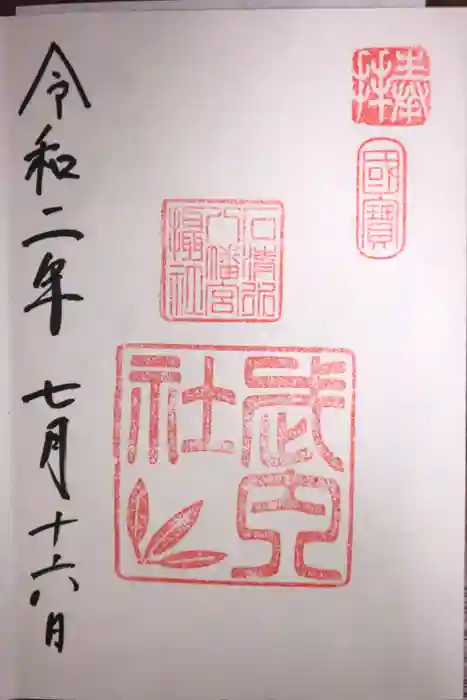 奉拝
國寶
石清水
八幡宮
攝社
武内
社
令和二年 七月 十六日